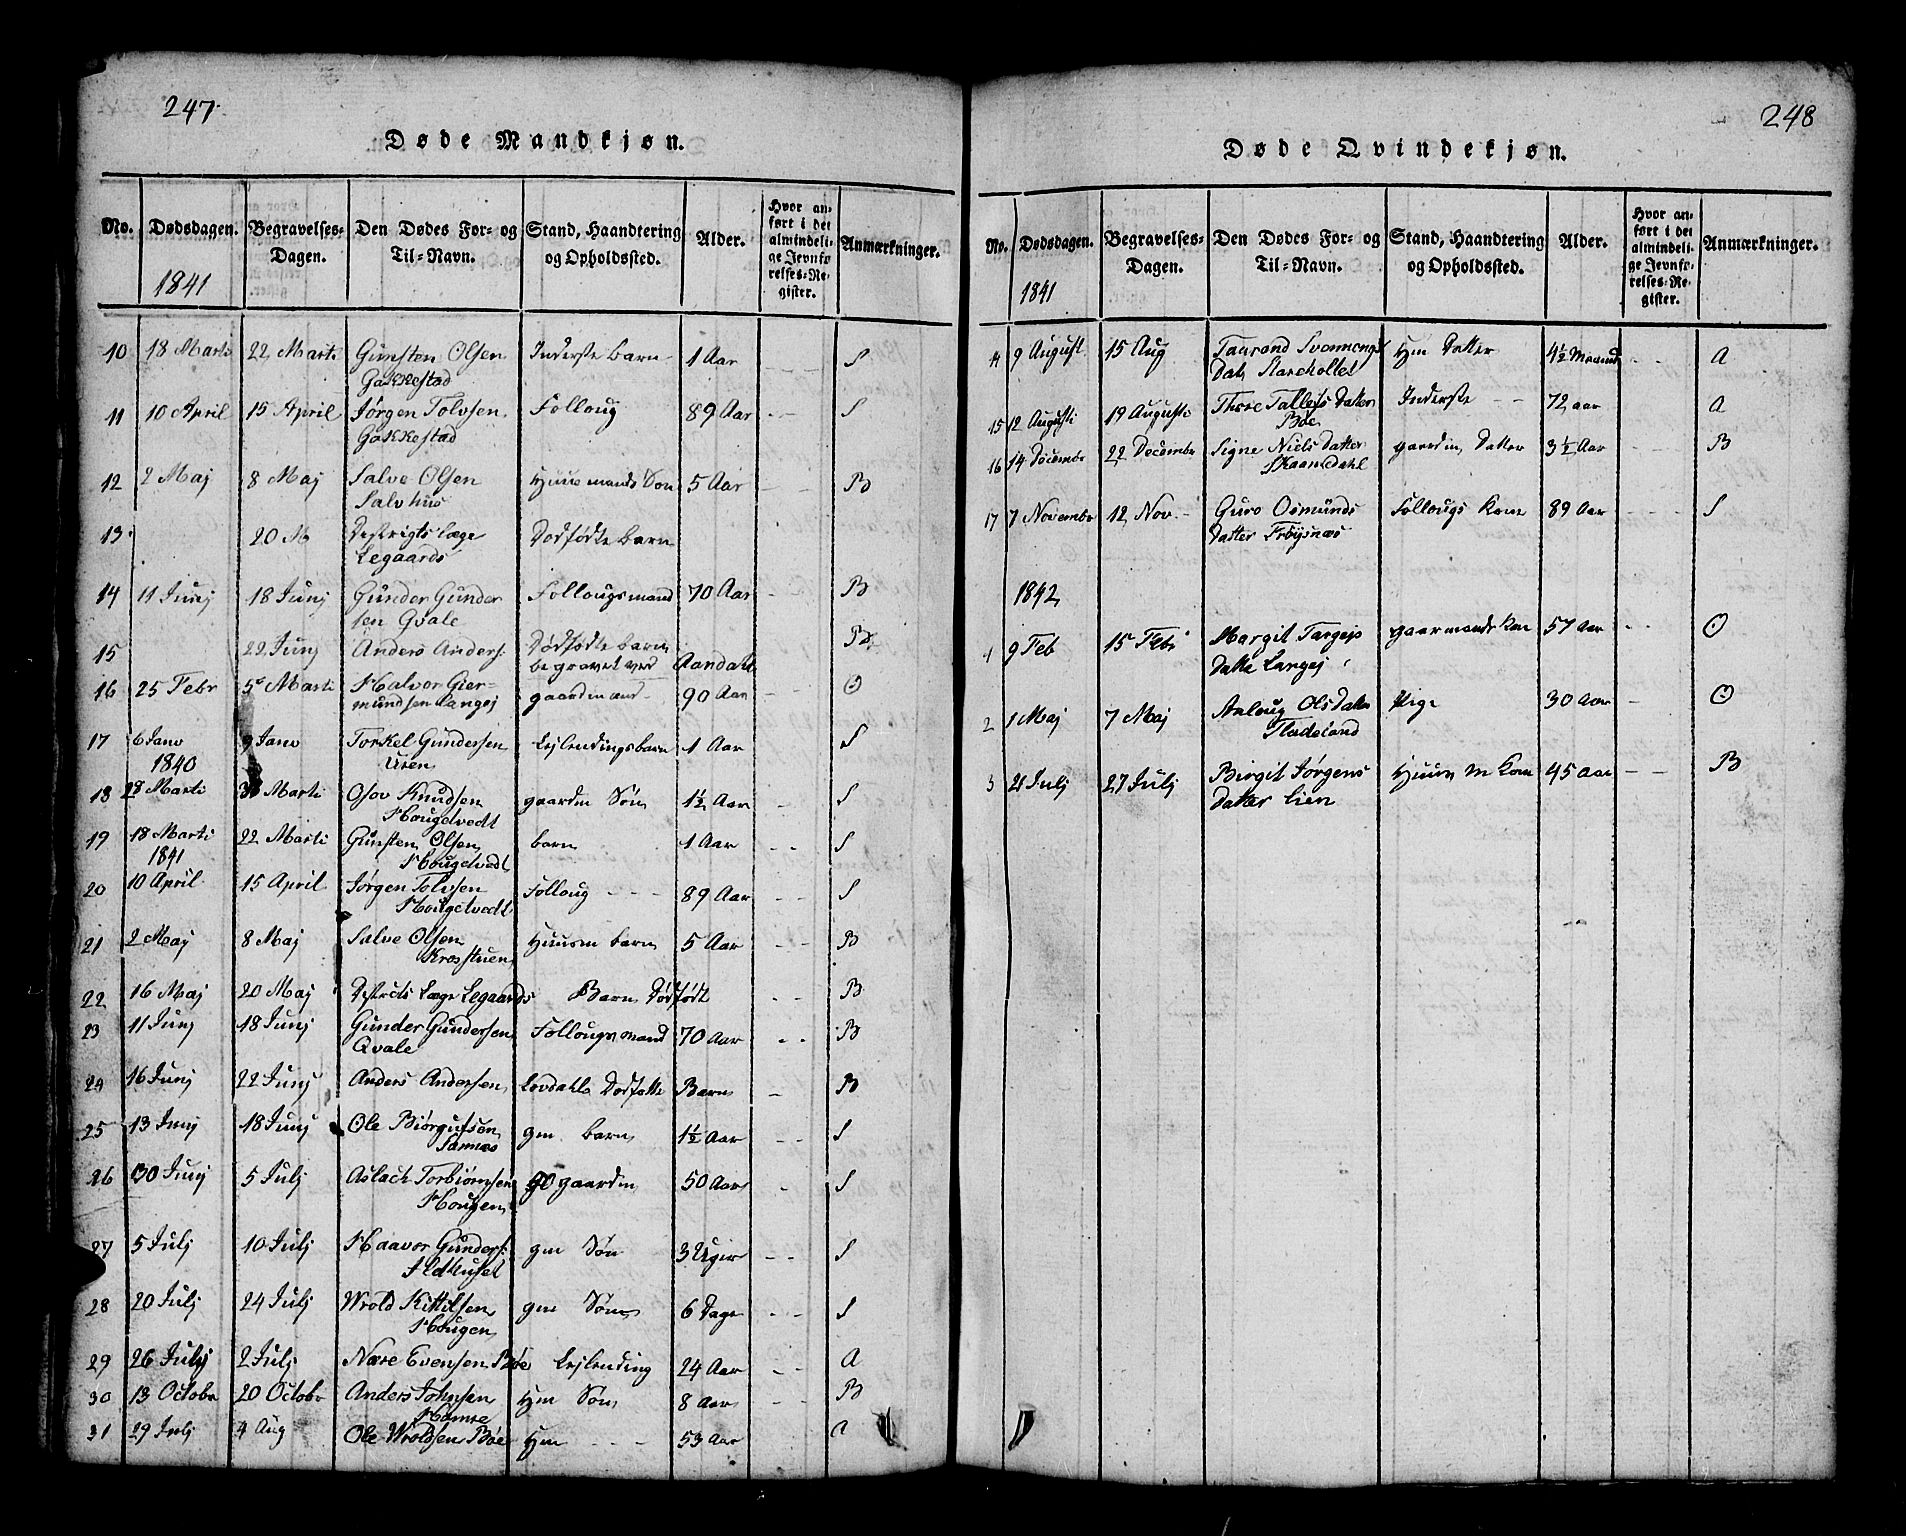 247.
Døde Mandkjøn.
No. Dødsdagen. Begravelses-Dagen. Den Dødes For- og Til-Navn. Stand, Haandtering og Opholdssted. Alder. Hvor anført i det almindelige Jevnførelses-Register. Anmærkninger.
1841
10 18 Marti 22 Marti Gunsten Olsen Inderste barn 1 Aar - - S
Gakkestad
11 10 April 15 April Jørgen Tolvsen Folloug 89 Aar - - S
Gakkestad
12 2 Maj 8 Maj Salve Olsen Huusmands Søn 5 Aar - - B
Salvhus
13 20 M Destrigts Læge Dodfødte barn
Legaards
14 11 Junj 18 Junj Gunder Gunder Follougsmand 70 Aar - - B
sen Qvale
15 22 Junj Anders Anders. Dødfødte barn B
begravet ved Aandahl
16 25 Febr 5 Marti Halvor Gier- gaardmand 90 Aar - - O
mundsen Langej
17 6 Janv 9 Janv Torkel Gundersen Lejlendingsbarn 1 Aar - - S
1840 Uren
18 28 Marti Marti Osov Knudsen gaardm Søn 1½ Aar - - S
Hougetvedt
19 18 Marti 22 Marti Gunsten Olsen barn 1 Aar S
1841 Hougetvedt
20 10 April 15 April Jørgen Tolvsen Folloug - - - 89 Aar - - S
Hougetvedt
21 2 Maj 8 Maj Salve Olsen Huusm barn 5 Aar - - B
Krosstuen
22 16 Maj 20 Maj Destrcts Læge Legaards Barn Dødfødt - - B
23 11 Junj 18 Junj Gunder Gundersen Follougs mand 70 Aar - - B
Qvale
24 16 Junj 22 Junj Anders Andersen Lovdahls Dodføtte Barn - B
25 13 Junj 18 Junj Ole Biørgufsen gm barn 1½ Aar - S
Sannes
26 30 Junj 5 Julj Aslach Torbiørnsen gaardm 50 Aar - S
Hougen
27 5 Julj 10 Julj Haavor Gunders. gm Søn 3 Uger - - S
Ildhuset
28 20 Julj 24 Julj Wrold Kittilsen gm Søn 6 Dage - - S
Hougen
29 26 Julj 2 Julj Nære Evensen Bøe Lejlending 24 Aar - - A
30 13 Octobr 20 Octobr Anders Johnsen Hm Søn 8 Aar - - B
Hamre
31 29 Julj 4 Aug Ole Wroldsen Bøe Hm - - - 53 Aar
248
Døde Qvindekjøn.
No. Dødsdagen. Begravelses-Dagen. Den Dødes For- og Til-Navn. Stand, Haandtering og Opholdssted. Alder. Hvor anført i det almindelige Jevnførelses-Register. Anmærkninger.
1841
9 August 15 Aug Taurand Hm Datter 4½ Maaned - - A
Dat
15 12 Augusti 19 Augusti Thore Tallejs Datter Inderste - - 72 aar A
Bøe
16 14 Decembr 22 Decembr Signe Niels Datter gaardm Datter 3½ Aar - - B
Skaamedahl
17 7 Novembr 12 Nov. Guro Osmunds Follougs Kone 89 Aar - - - S
datter Frøysnæs
1842
1 9 Feb 15 Feb Margit Targejs gaarmands Kone 57 Aar - - O
datte Langej
2 1 Maj 7 Maj Aaloug Olsdatter Pige 30 Aar - O
Fladeland
3 21 Julj 27 Julj Birgit Jørgens Huus m Kone 45 Aar - - B
datter Lien